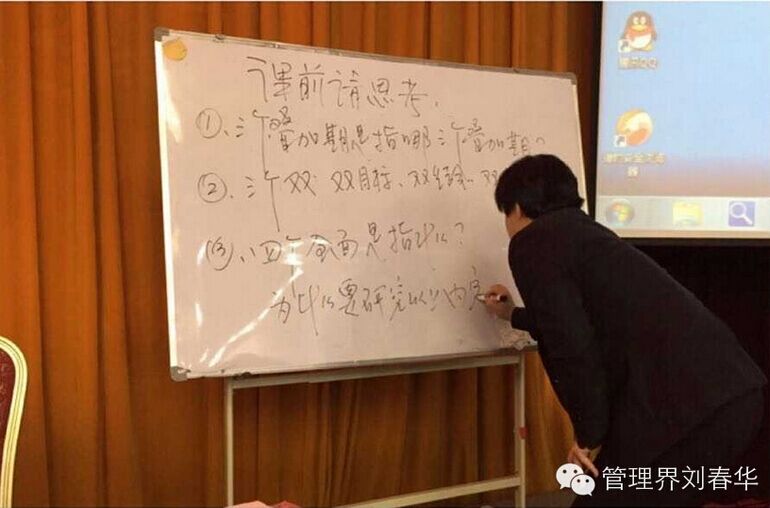 课前请思考.
①、三个叠加期是指哪三个叠加期?
②、三个双 双目标、双结合、双
③、四个全面是指什么?
为什么要研究以
腾讯QQ
管理界刘春华